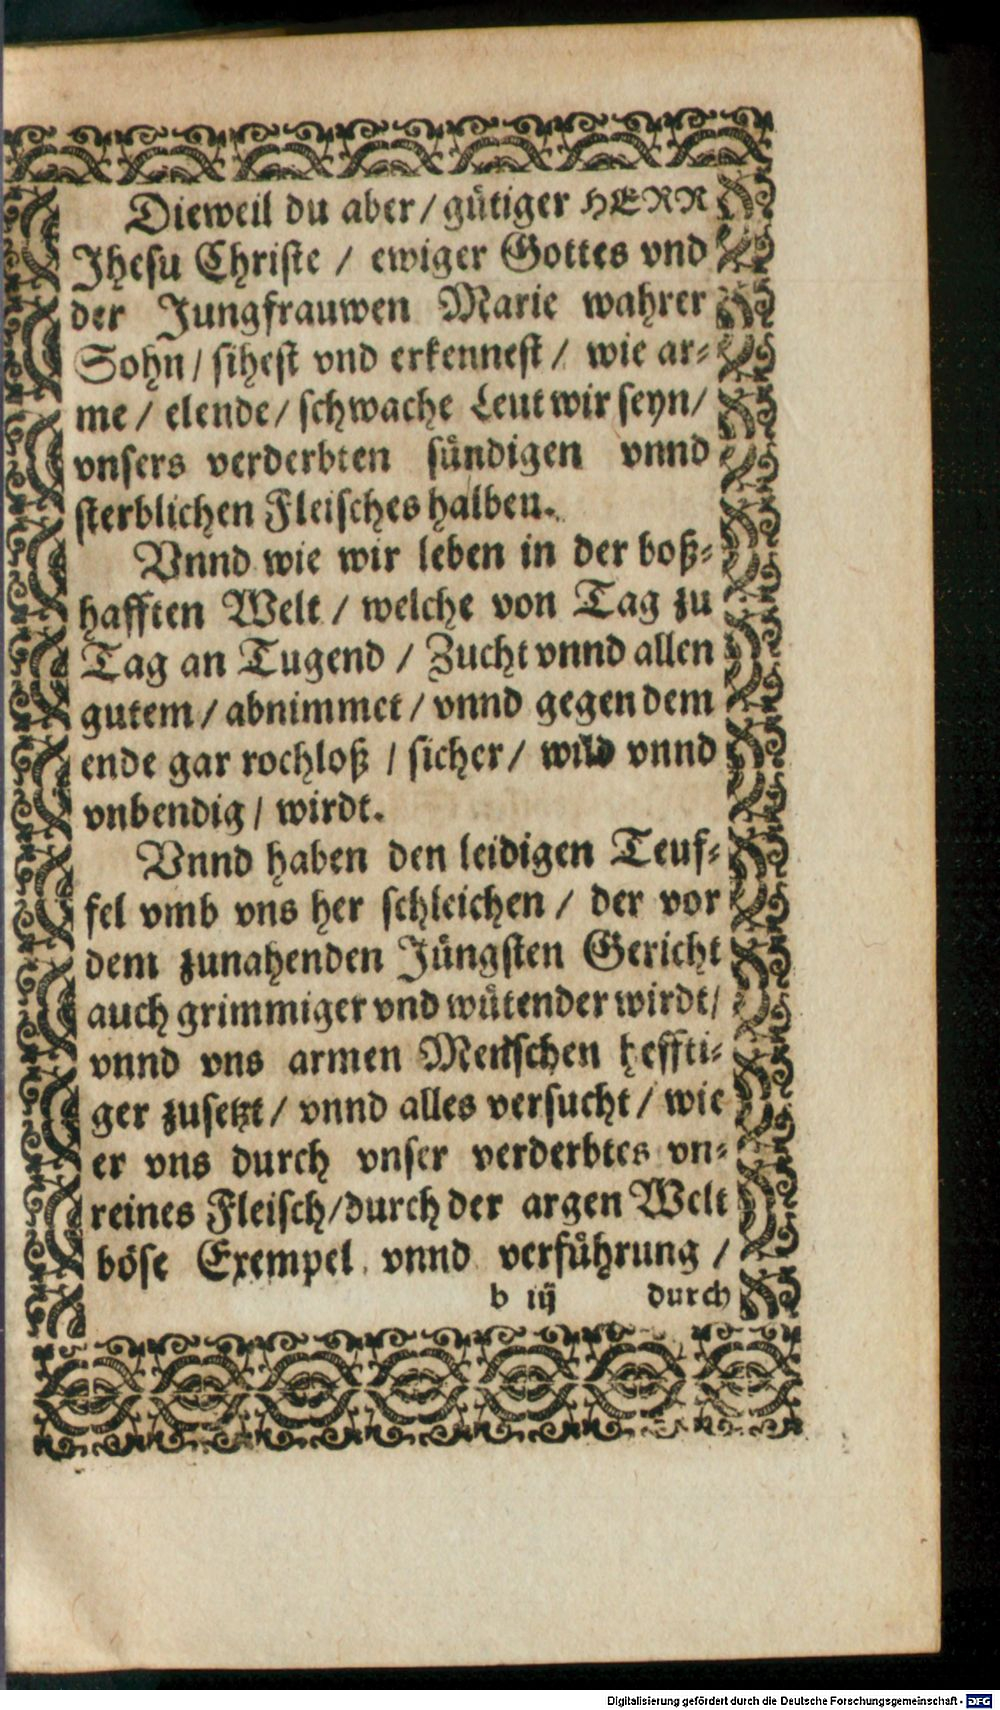 Dieweil du aber / gütiger HERR
Jhesu Christe / ewiger Gottes vnd
der Jungfrauwen Marie wahrer
Sohn / sihest vnd erkennest / wie ar⸗
me / elende / schwache Leut wir seyn /
vnsers verderbten sündigen vnnd
sterblichen Fleisches halben.
Vnnd wie wir leben in der boß⸗
hafften Welt / welche von Tag zu
Tag an Tugend / Zucht vnnd allen
gutem / abnimmet / vnnd gegen dem
ende gar rochloß / sicher / wild vnnd
vnbendig / wirdt.
Vnnd haben den leidigen Teuf⸗
fel vmb vns her schleichen / der vor
dem zunahenden Jüngsten Gericht
auch grimmiger vnd wütender wirdt /
vnnd vns armen Menschen heffti⸗
ger zusetzt / vnnd alles versucht / wie
er vns durch vnser verderbtes vn⸗
reines Fleisch / durch der argen Welt
böse Exempel vnnd verführung /
b iij durch
Digitalisierung gefördert durch die Deutsche Forschungsgemeinschaft - DFG